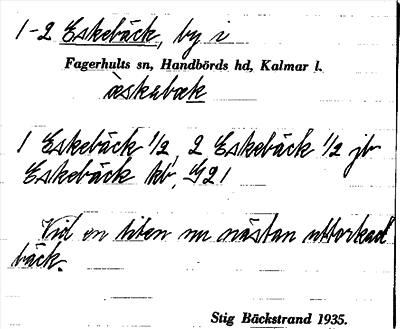 1-2 Eskebäck, by i
Fagerhults sn, Handbörds hd, Kalmar l.
æskabæk
1 Eskebäck 1/2, 2 Eskebäck 1/2 jb
Eskebäck kb, G21
Vid en liten nu nästan uttorkad
bäck.
Stig Bäckstrand 1935.